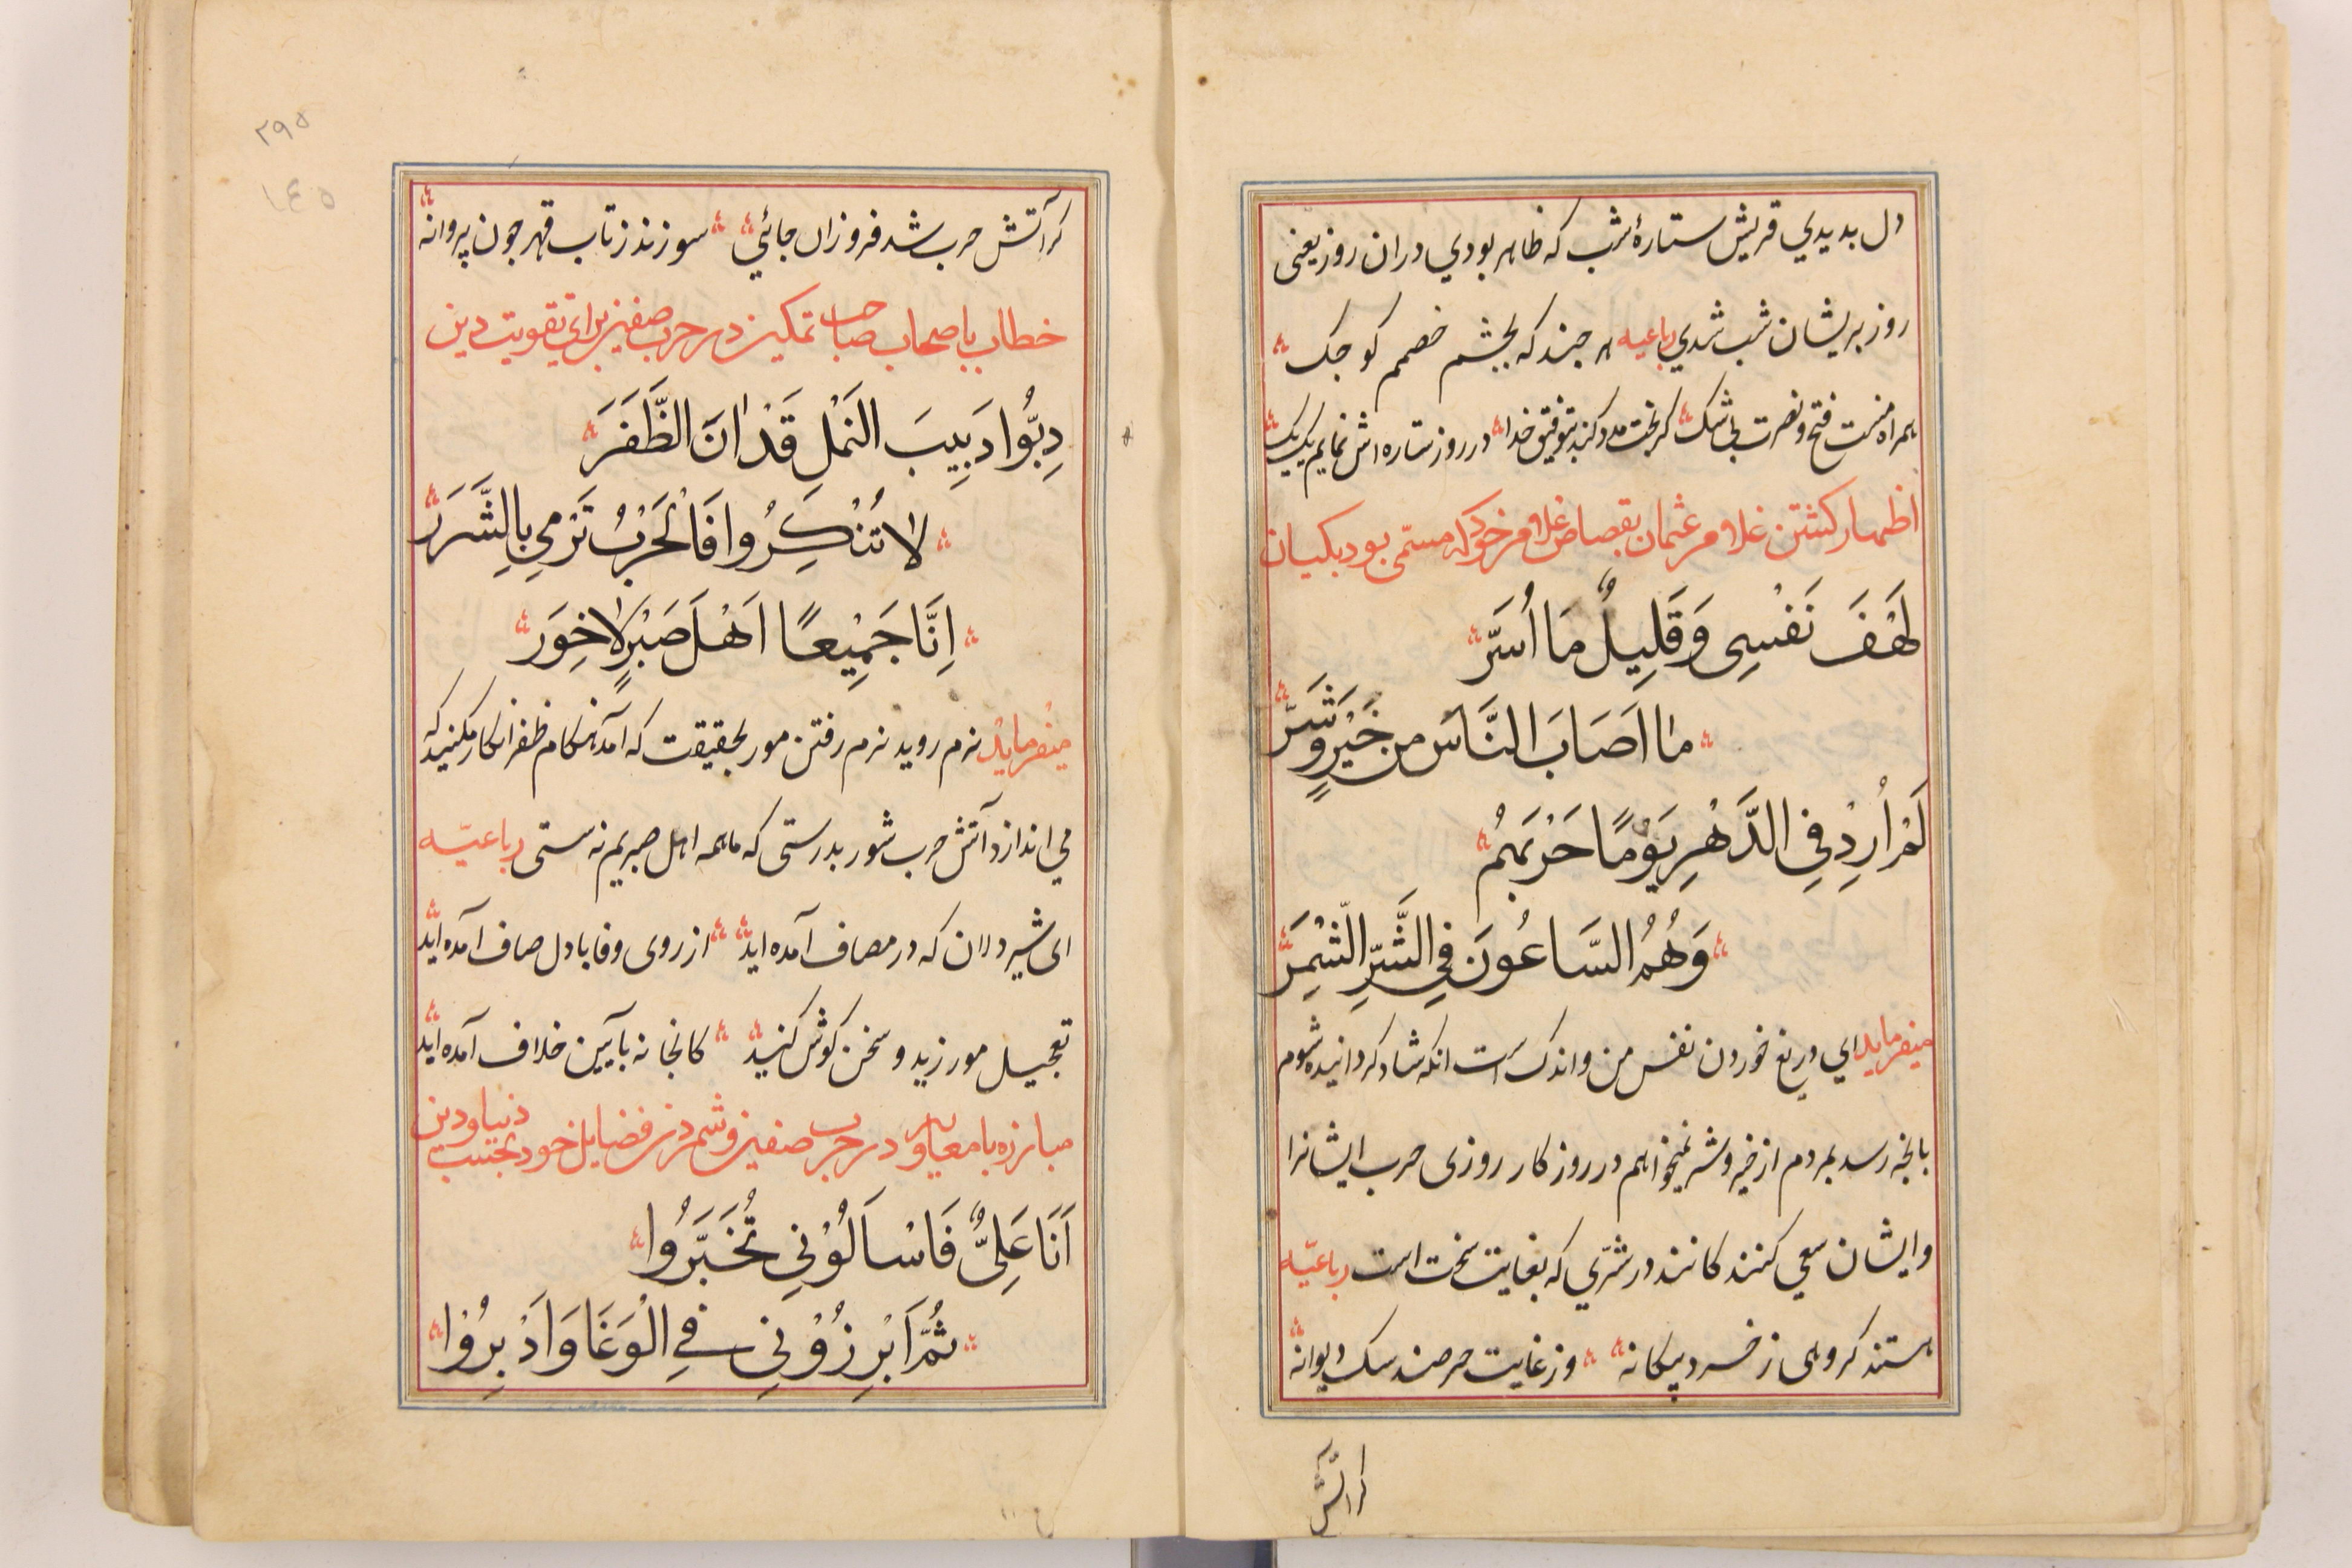 دل بدیدي قریش ستارهٔ شب که ظاهر بودي دران روز یعنی
روز بریشان شب شدي رباعیه هر جند که بجشم خصمم کوجک
همراه منست فتح و نصرت بی شک کر بخت مدد کند بتوفیق خدا در روز ستاره اش نمایم یک یک
اظهار کشتن غلام عثمان بقصاص غلام خود که مسمّی بود بکیسان
لَهْفَ نَفْسِی وَقَلِیلٌ مَا أُسَرّ
مٰا اَصَابَ النَّاسَ من خَیْرٍ وَشَرّ
لَمْ أُرِدْ فِی الدَّهْرِ یَوْمًا حَرْبَهُمْ
وَهُمُ السَّاعُونَ فِی الشَّرِّ الشَّمِرّ
میفرماید اي دریغ خوردن نفس من و اندک است انکه شاد کردانیده شوم
بانجه رسد بمردم از خیر و شر نمیخواهم در روزکار روزی حرب ایشانرا
و ایشان سعي کنند کانند در شرّي که بغایت سخت است رباعیّه
هستند کروهی ز خرد بیکانه وز غایت حرصند سک دیوانه
کر آتش
کر آتش حرب شد فروزان جائي سوزند ز تاب قهر جون پروانه
خطاب باصحاب صاحب تمکین در حرب صفین برای تقویت دین
دِبُّوا دَبِیبَ النَمْلِ قَدْ اٰنَ الظَّفَرَ
لاٰ تُنْکِرُوا فَالْحَرْبُ تَرْمِي بِالشَّرَر
اِنَّا جَمِیْعًا اَهْلَ صَبْرٍ لاٰ خِوَر
میفرماید نرم روید نرم رفتن مور بحقیقت که آمد هنکام ظفر انکار مکنید که
می اندازد آتش حرب شور بدرستی که ما همه اهل صبریم نه سستی رباعیّه
ای شیردلان که در مصاف آمده اید از روی وفا با دل صاف آمده اید
تعجیل مورزید و سخن کوش کنید کانجا نه بآیین خلاف آمده اید
مبارزه با معاویه در حرب صفین و شمردن فضایل خود بحسب دنیا و دین
اَنَا عَلِیٌّ فَاسْاَلُوْنِی تُخَبَّرُوا
ثُمَّ اَبْرِزُوْنِی فِی الْوَغَا وَاَدْبِرُوْا
٢٩٥
١٤٥